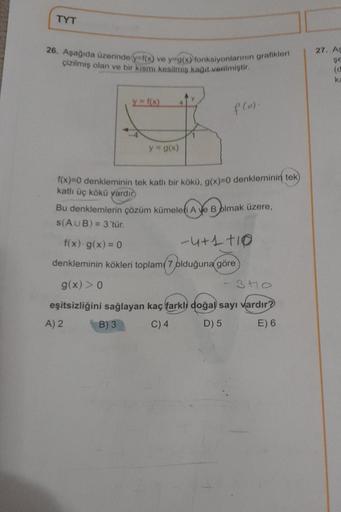 TYT
26. Aşağıda üzerinde y=f(x) ve y=g(x) fonksiyonlarının grafikleri
çizilmiş olan ve bir kısmı kesilmiş kağıt verilmiştir.
y = f(x)
4
y
f(x).
-4
1
y = g(x)
f(x)=0 denkleminin tek katlı bir kökü, g(x)=0 denkleminin tek
katlı üç kökü vardır.
Bu denklemlerin çözüm kümeleri A ve B olmak üzere,
s(A∪B) = 3'tür.
f(x) · g(x) = 0
-4+1+10
denkleminin kökleri toplamı 7 olduğuna göre
g(x) > 0
-3+10
eşitsizliğini sağlayan kaç farklı doğal sayı vardır?
A) 2 B) 3 C) 4 D) 5 E) 6
27.